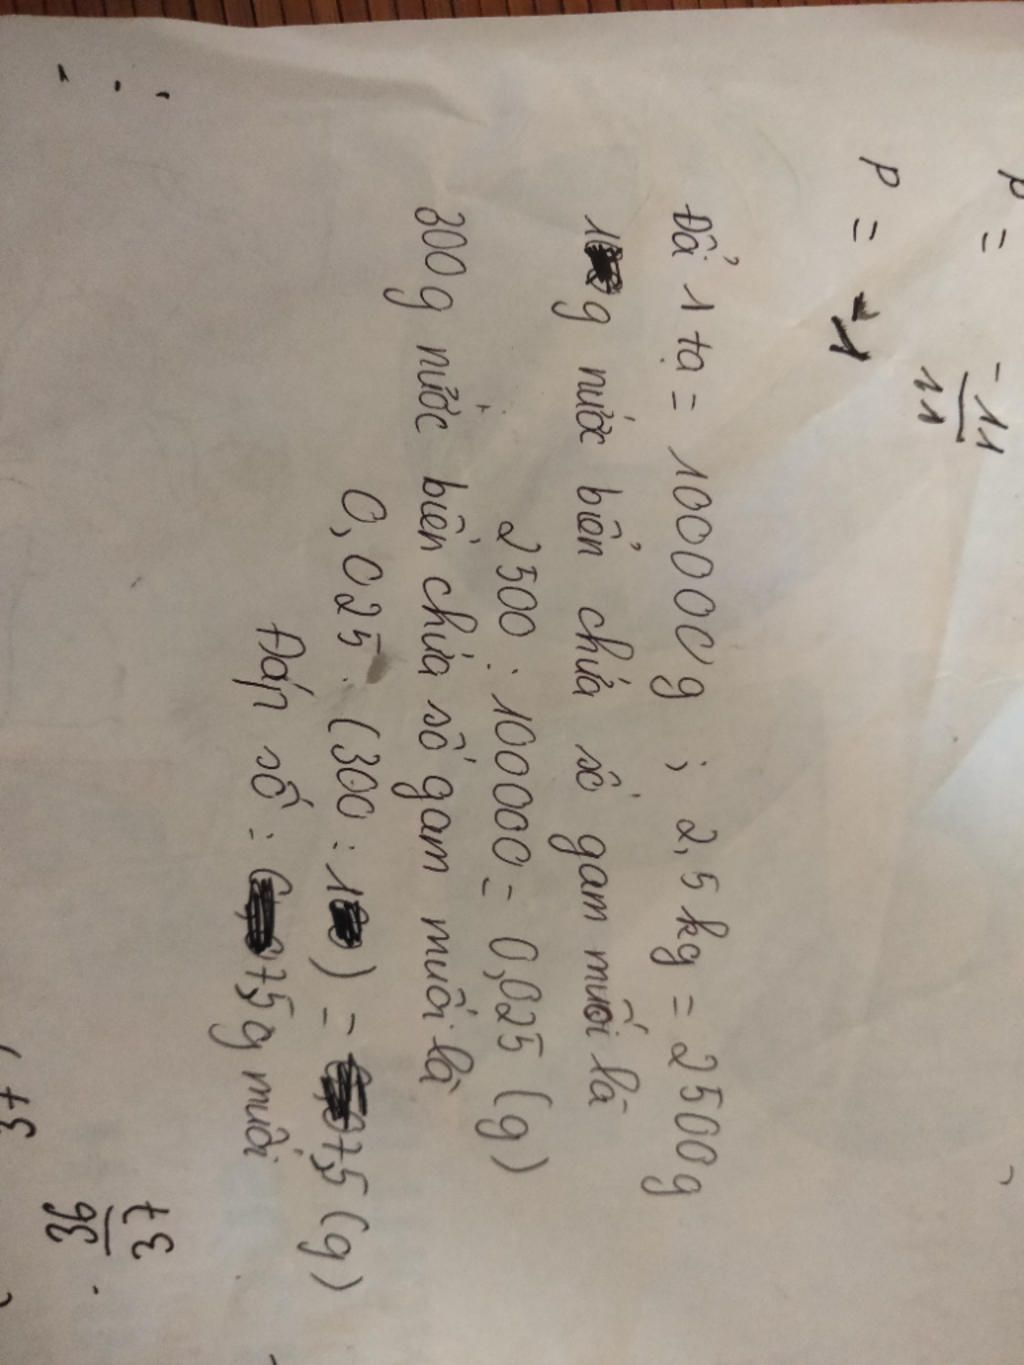 p = -11/11
p = -1
Đổi 1 tạ = 100000 g ; 2,5 kg = 2500g
1 g nước biển chứa số gam muối là
2500 : 100000 = 0,025 (g)
300g nước biển chứa số gam muối là
0,025 . (300 : 1) = 7,5 (g)
Đáp số : 7,5g muối
37/36
37